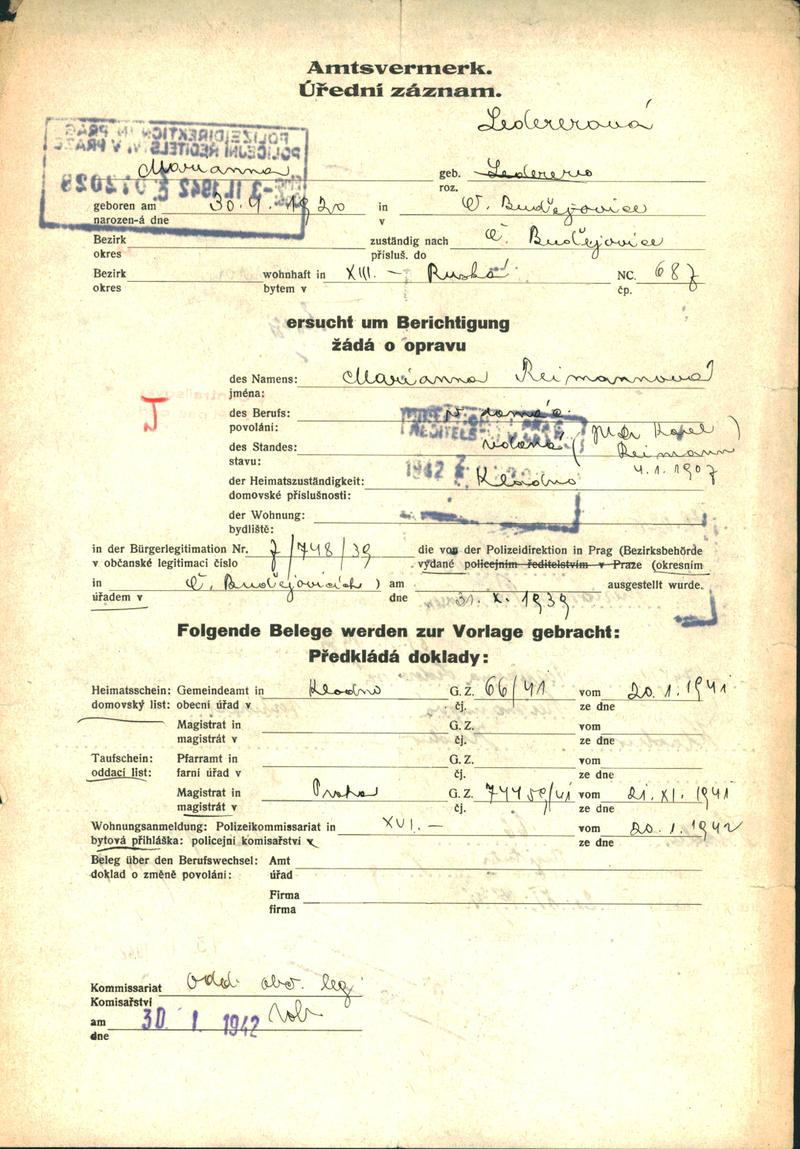 Amtsvermerk.
Úřední záznam.
Ledererová
POLIZEIDIREKTION IN PRAG
POLICEJNÍ ŘEDITELS. V PRAZE
Marianna geb. Lederero
roz.
geboren am 30. 9. 1920 in Č. Budějovice
narozen-á dne v
Bezirk zuständig nach Č. Budějovice
okres přísluš. do
Bezirk wohnhaft in XIII. – Ruská NC. 687
okres bytem v čp.
ersucht um Berichtigung
žádá o opravu
des Namens: Marianna Reimannová
jména:
J
des Berufs: v domác.
povolání:
des Standes: vdaná (MDr Karel )
stavu: Reimann
4. 1. 1907
1942
der Heimatszuständigkeit: Kladno
domovské příslušnosti:
der Wohnung:
bydliště:
in der Bürgerlegitimation Nr. 7/748/39 die von der Polizeidirektion in Prag (Bezirksbehörde
v občanské legitimaci číslo vydané policejním ředitelstvím v Praze (okresním
in Č. Budějovicích ) am ausgestellt wurde.
úřadem v dne 31. X. 1939
Folgende Belege werden zur Vorlage gebracht:
Předkládá doklady:
Heimatsschein: Gemeindeamt in Kladno G. Z. 66/41 vom 20. 1. 1941
domovský list: obecní úřad v čj. ze dne
Magistrat in G. Z. vom
magistrát v čj. ze dne
Taufschein: Pfarramt in G. Z. vom
oddací list: farní úřad v čj. ze dne
Magistrat in Praha G. Z. 77459/41 vom 21. XI. 1941
magistrát v čj. ze dne
Wohnungsanmeldung: Polizeikommissariat in XVI. – vom 20. 1. 1942
bytová přihláška: policejní komisařství v ze dne
Beleg über den Berufswechsel: Amt
doklad o změně povolání: úřad
Firma
firma
Kommissariat odd. obč. leg.
Komisařství
am 30. 1. 1942
dne